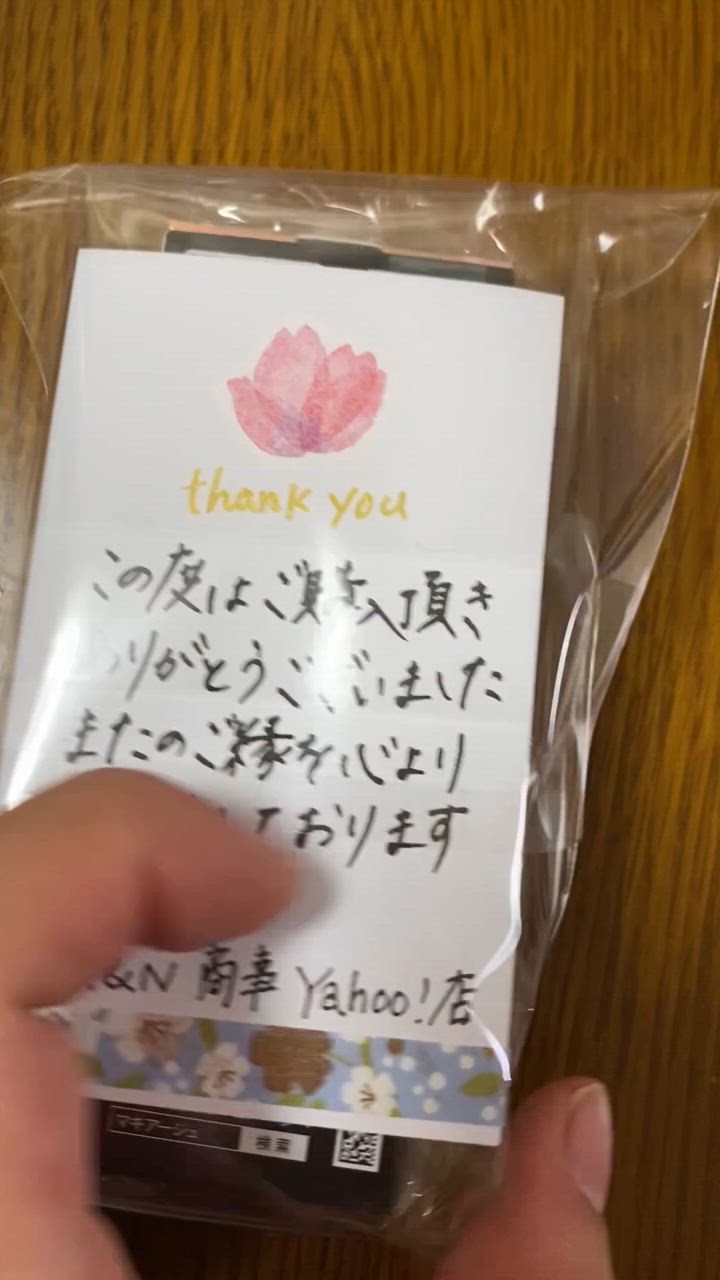 thank you
この度はご購入頂き
ありがとうございました
またのご縁を心より
ております
&N 商幸 Yahoo!店
マキアージュ 検索